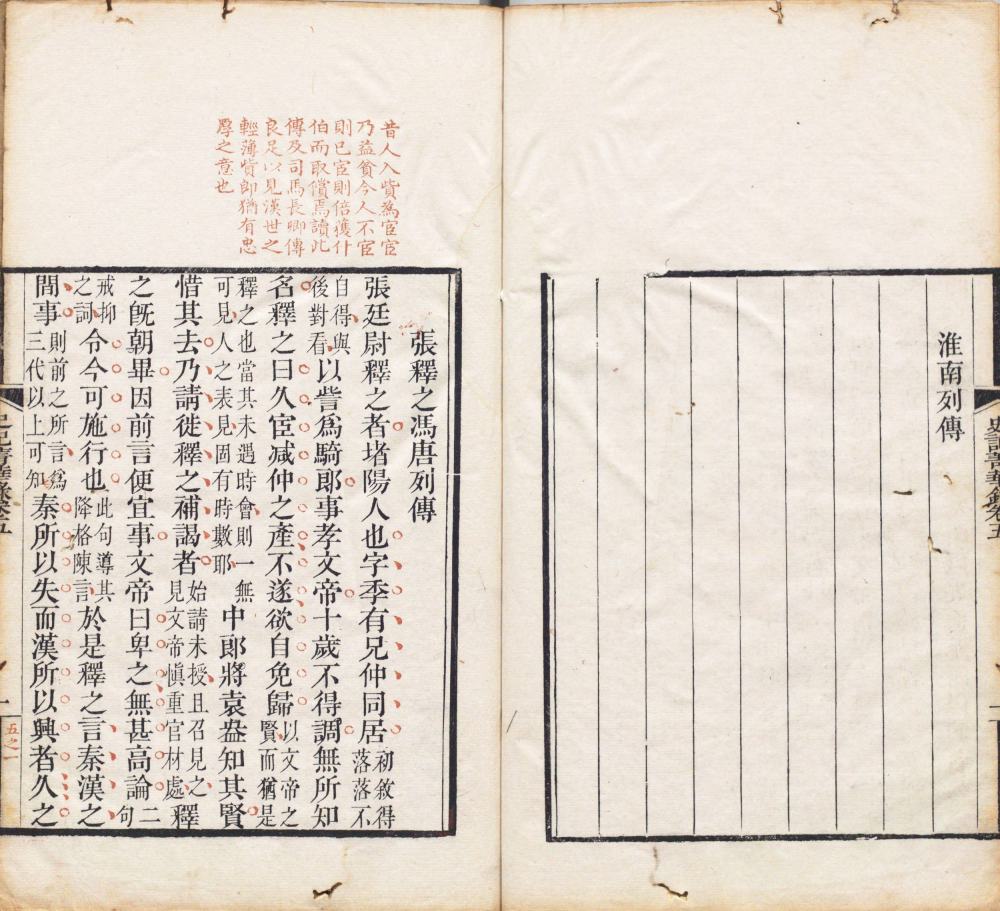 淮南列傳
史記菁華錄卷五
昔人入貲爲宦宦
乃益貧今人不宦
則已宦則倍獲什
伯而取償焉讀此
傳及司馬長卿傳
良足以見漢世之
輕薄貲郎猶有忠
厚之意也
張釋之馮唐列傳
張廷尉釋之者堵陽人也字季有兄仲同居初敘得落落不
自得與後對看以訾爲騎郞事孝文帝十歲不得調無所知
名釋之曰久宦减仲之產不遂欲自免歸以文帝之賢而猶是
釋之也當其未遇時會則一無可見人之表見固有時數耶中郎將袁盎知其賢
惜其去乃請徙釋之補謁者始請未授且召見之見文帝愼重官材處釋
之旣朝畢因前言便宜事文帝曰卑之無甚高論二句
戒抑之詞令今可施行也此句導其降格陳言於是釋之言秦漢之
間事則前之所言爲三代以上可知秦所以失而漢所以興者久之
史記菁華錄卷五
一
五之一